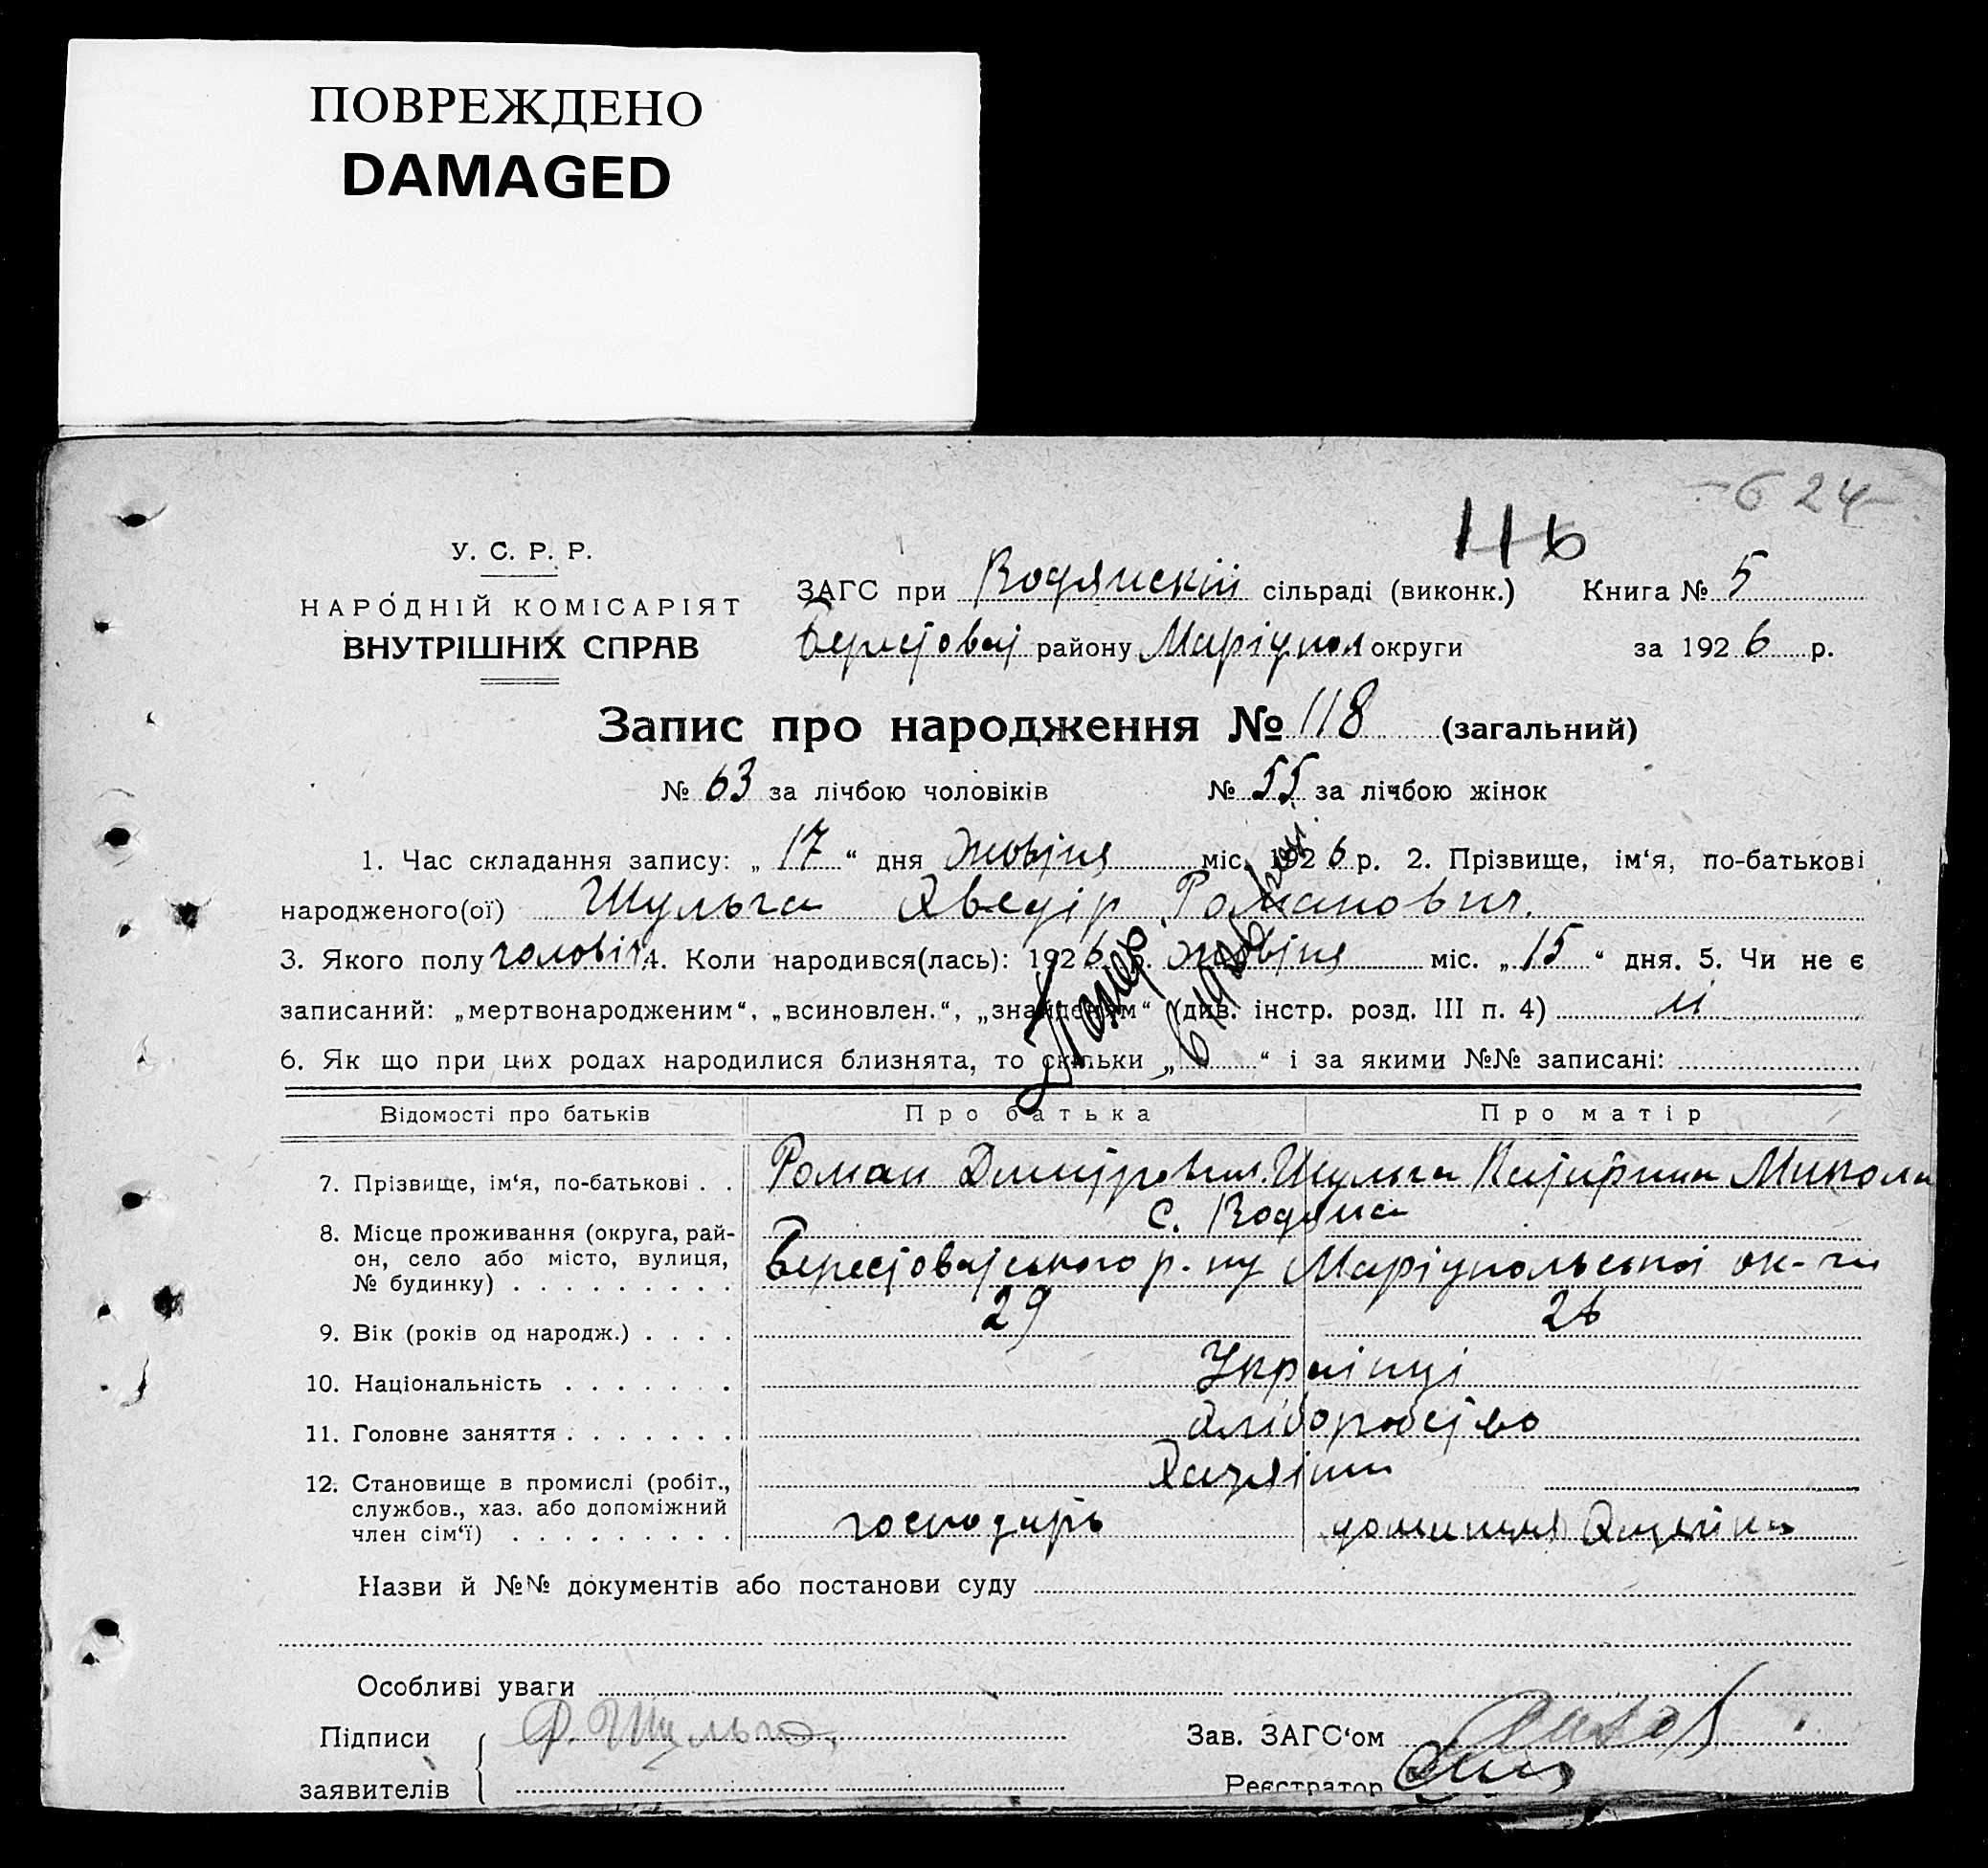 ПОВРЕЖДЕНО
DAMAGED
624
116
У. С. Р. Р.
НАРО́ДНІЙ КОМІСАРІЯТ
ВНУТРІШНІХ СПРАВ
ЗАГС при Водянскій сільраді (виконк.) Книга № 5
Берестоват району Маріупол округи за 1926 р.
Запис про народження № 118 (загальний)
№ 63 за лічбою чоловіків № 55 за лічбою жінок
1. Час складання запису: „ 17 “ дня жовтня міс. 1926 р. 2. Прізвище, ім‘я, по-батькові
народженого(ої) Шульга Хведір Романович.
3. Якого полу чоловіч. 4. Коли народився(лась): 1926 р. жовтня міс. „ 15 “ дня. 5. Чи не є
записаний: „мертвонародженим“, „всиновлен.“, „знайденим“ (див. інстр. розд. III п. 4) ні
6. Як що при цих родах народилися близнята, то скільки „ “ і за якими №№ записані:
Помер
в 1926 році
Відомості про батьків Про батька Про матір
7. Прізвище, ім‘я, по-батькові . . Роман Дмитрович Шульга Катирина Микола
8. Місце проживання (округа, рай-
он, село або місто, вулиця,
№ будинку) . . . . . . . . .
с. Водяна
Берестоватського р-ну Маріупольської ок-ги
9. Вік (років од народж.) . . . . 29 26
10. Національність . . . . . . . Українці
11. Головне заняття . . . . . . . хліборобство
12. Становище в промислі (робіт.,
службов., хаз. або допоміжний
член сім‘ї) . . . . . . . . .
Хазяіни
господарь домашня Хазяіка
Назви й №№ документів або постанови суду
Особливі уваги
Підписи
заявителів
Р. Шульга
Зав. ЗАГС‘ом
Реєстратор